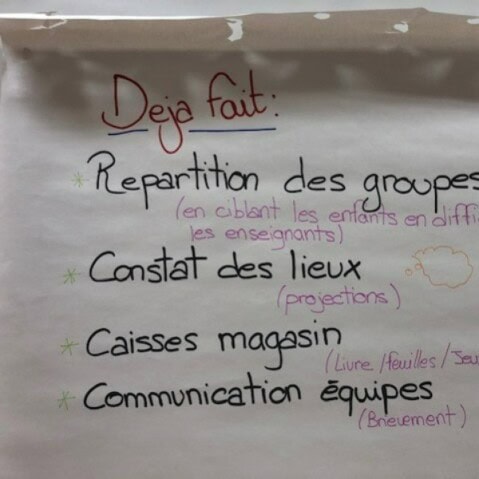 Deja fait:
* Repartition des groupes
(en ciblant les enfants en diffi
les enseignants)
* Constat des lieux
(projections)
* Caisses magasin
(Livre / feuilles / Jeu
* Communication équipes
(Brièvement)